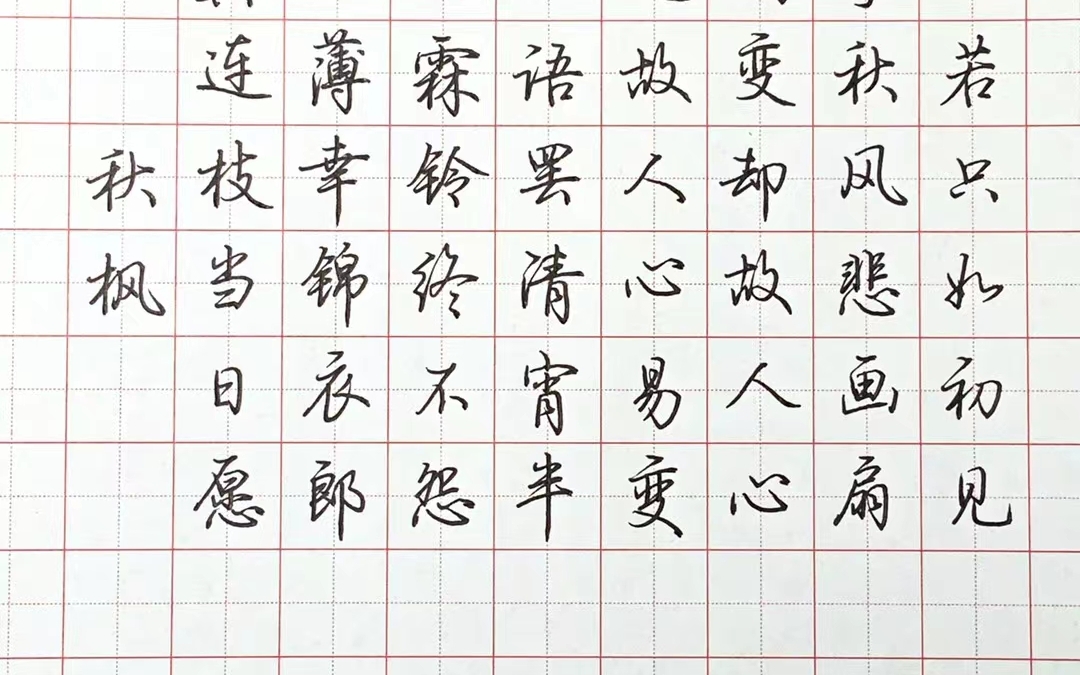 若只如初见
秋风悲画扇
变却故人心
故人心易变
语罢清宵半
霖铃终不怨
薄幸锦衣郎
连枝当日愿
秋枫